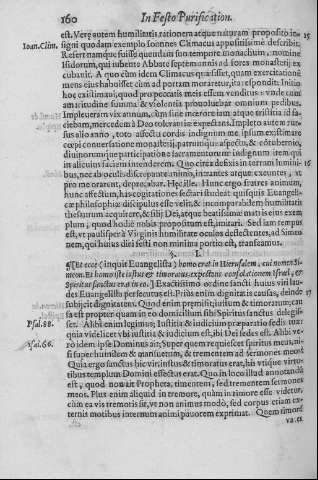 160 In Festo Purification.
est. Verè autem humilitatis rationem atque naturam proposito in-
signi quodam exemplo Ioannes Climacus appositissimè describit.
Ioan. Clim.
Refert namque fuisse quendam suo tempore monachum, nomine
Isidorum, qui iubente Abbate septem annis ad fores monasterij ex
cubauit. A quo cùm idem Climacus quæsisset, quam exercitationē
mens eius habuisset cùm ad portam moraretur, ita respondit. Initio
hoc existimaui, quod pro peccatis meis essem venditus: vnde cum
amaritudine summa & violentia prouoluebar omnium pedibus.
Impleueram vix annum, cùm sine mœrore iam atque tristitia id fa-
ciebam, mercedem à Deo tolerantiæ expectans. Impleto autem rur-
sus alio anno, toto affectu cordis indignum me ipsum existimare
cœpi conuersatione monasterij, patrumque aspectu, & cōtubernio,
diuinorumque participatione sacramentorum: indignum item qui
in alicuius faciem intenderem. Quo circa defixis in terram lumini-
bus, nec ab oculis discrepante animo, intrantes atque exeuntes, vt
pro me orarent, deprecabar. Hęc ille. Hunc ergo fratres animum,
hunc affectum, hæc cogitationes habeat quisquis Euangeli-
cæ philosophiæ discipulus esse velit, & incomparabilem humilitatis
thesaurum acquirere, & filij Dei, atque beatissimæ matris eius exem
plum, quod hodie nobis propositum est, imitari. Sed iam tempus
est, vt paulisper à Virginis humilitate oculos deflectentes, ad Simeo-
nem, qui huius diei festi non minima portio est, transeamus.
§.
¶[Et ecce (inquit Euangelista) homo erat in Hierusalem, cui nomen Si-
meon. Et homo iste iustus & timoratus, expectans consolationem Israel, &
Spiritus sanctus erat in eo.] Exactissimo ordine sancti huius viri lau-
des Euangelista persecutus est. Priùs enim dignitatis causas, deinde
subijcit dignitatem. Quod enim præmisit, iustum & timoratum, cau
sa est propter quam in eo domicilium sibi Spiritus sanctus delegis-
set. Alibi enim legimus, Iustitia & iudicium præparatio sedis tuæ:
Psal. 88.
quia videlicet vbi iustitia & iudicium est, ibi Dei sedes est. Alibi ve-
rò idem ipse Dominus ait, Super quem requiescet spiritus meus, ni-
si super humilem & mansuetum, & trementem ad sermones meos?
Quia ergo sanctus hic vir, iustus & timoratus erat, his vtique virtu-
tibus templum Domini effectus erat. Quo in loco illud annotandū
est, quod non ait Propheta, timentem, sed trementem sermones
meos. Plus enim aliquid in tremore, quàm in timore esse videtur,
cùm ea vis tremoris sit, vt non animus modò, sed corpus etiam ex-
ternis motibus internum animi pauorem exprimat. Quem timorē